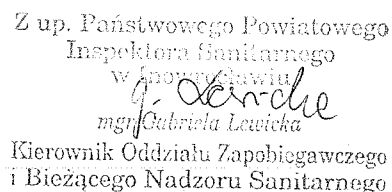 Z up. Państwowego Powiatowego
Inspektora Sanitarnego
w Inowrocławiu
mgr Gabriela Lewicka
Kierownik Oddziału Zapobiegawczego
i Bieżącego Nadzoru Sanitarnego